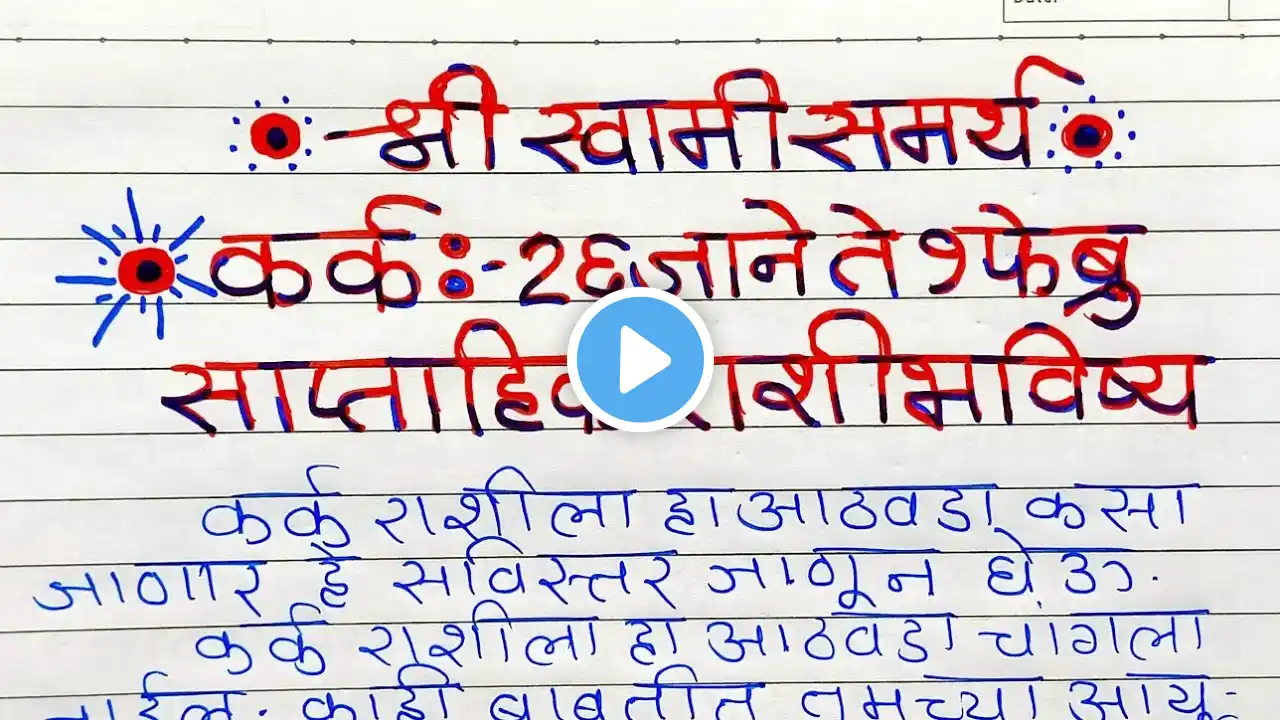 श्री स्वामी समर्थ
कर्क :- 26 जाने ते 1 फेब्रु
साप्ताहिक राशीभविष्य
कर्क राशीला हा आठवडा कसा
जाणार हे सविस्तर जाणून घेऊ.
कर्क राशीला हा आठवडा चांगला
जाईल. काही बाबतीत तुमच्या आयु-